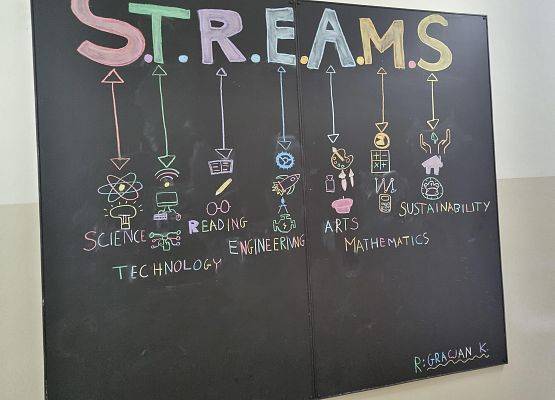 S.T.R.E.A.M.S
SCIENCE
TECHNOLOGY
READING
ENGINEERING
ARTS
MATHEMATICS
SUSTAINABILITY
R: GRACJAN K.